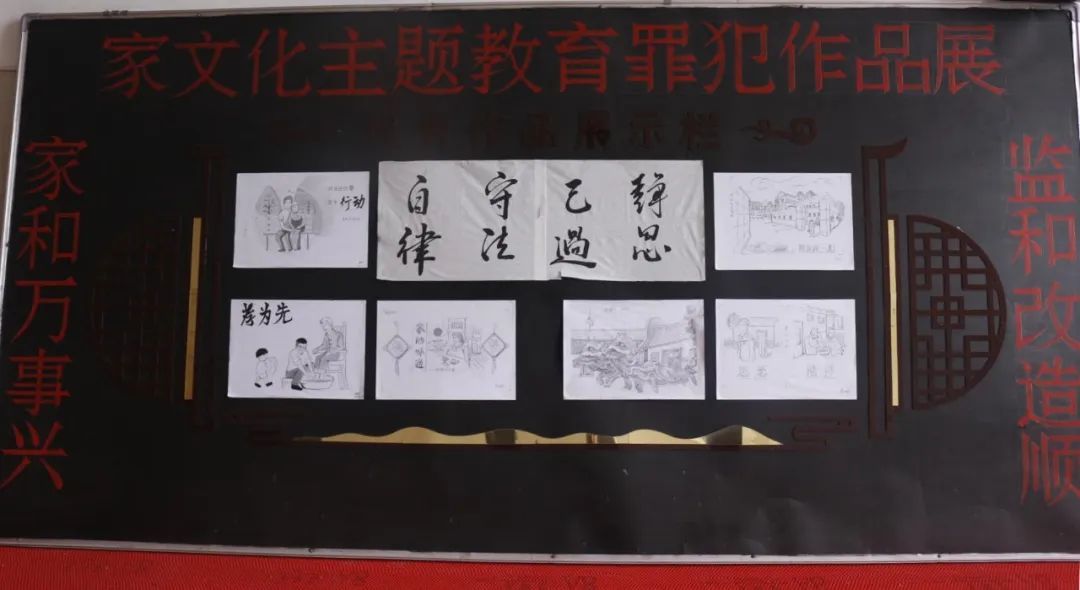 家文化主题教育罪犯作品展
作品展示栏
家和万事兴
监和改造顺
静思
己過
守法
自律
行动
孝为先
家的味道